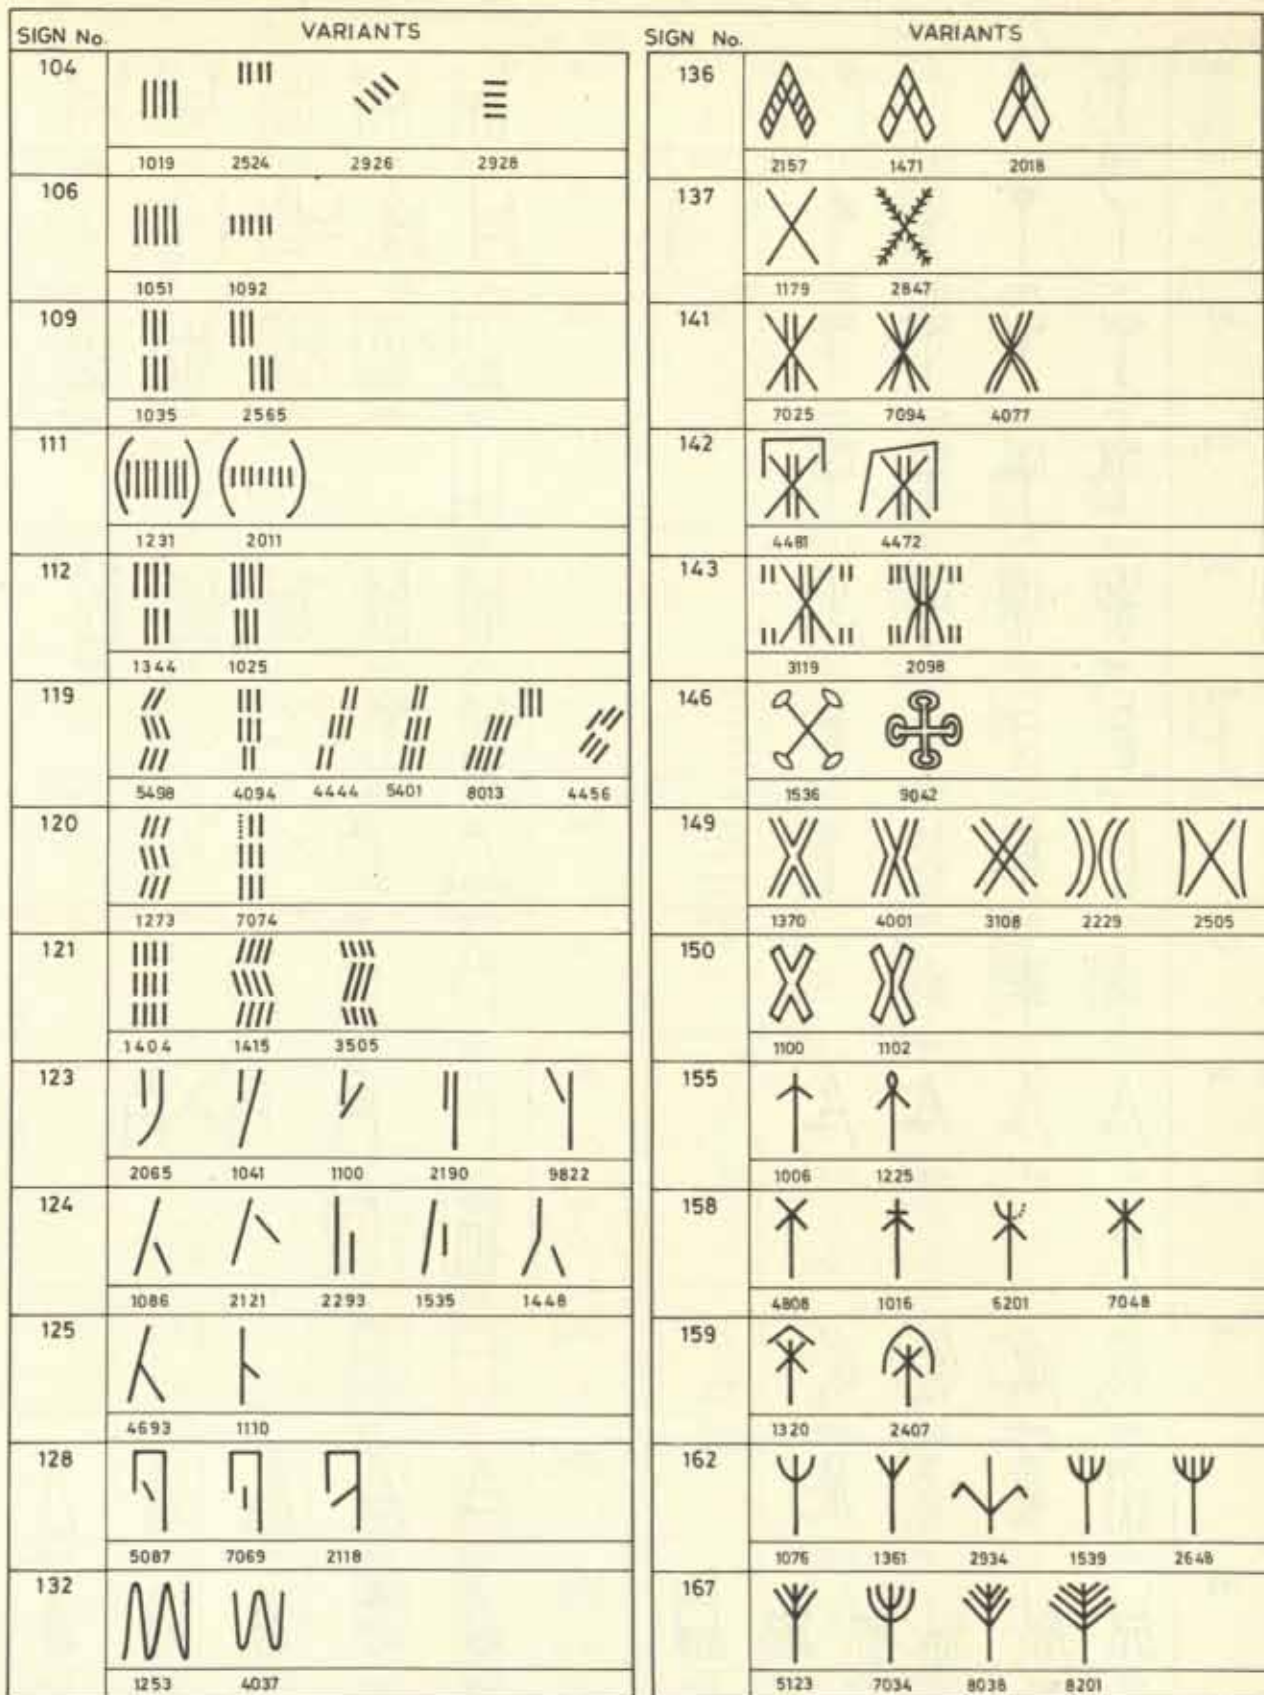 SIGN No. VARIANTS
104
1019 2524 2926 2928
106
1051 1092
109
1035 2565
111
1231 2011
112
1344 1025
119
5498 4094 4444 5401 8013 4456
120
1273 7074
121
1404 1415 3505
123
2065 1041 1100 2190 9822
124
1086 2121 2293 1535 1448
125
4693 1110
128
5087 7069 2118
132
1253 4037
SIGN No. VARIANTS
136
2157 1471 2018
137
1179 2847
141
7025 7094 4077
142
4481 4472
143
3119 2098
146
1536 9042
149
1370 4001 3108 2229 2505
150
1100 1102
155
1006 1225
158
4808 1016 6201 7048
159
1320 2407
162
1076 1361 2934 1539 2648
167
5123 7034 8038 8201